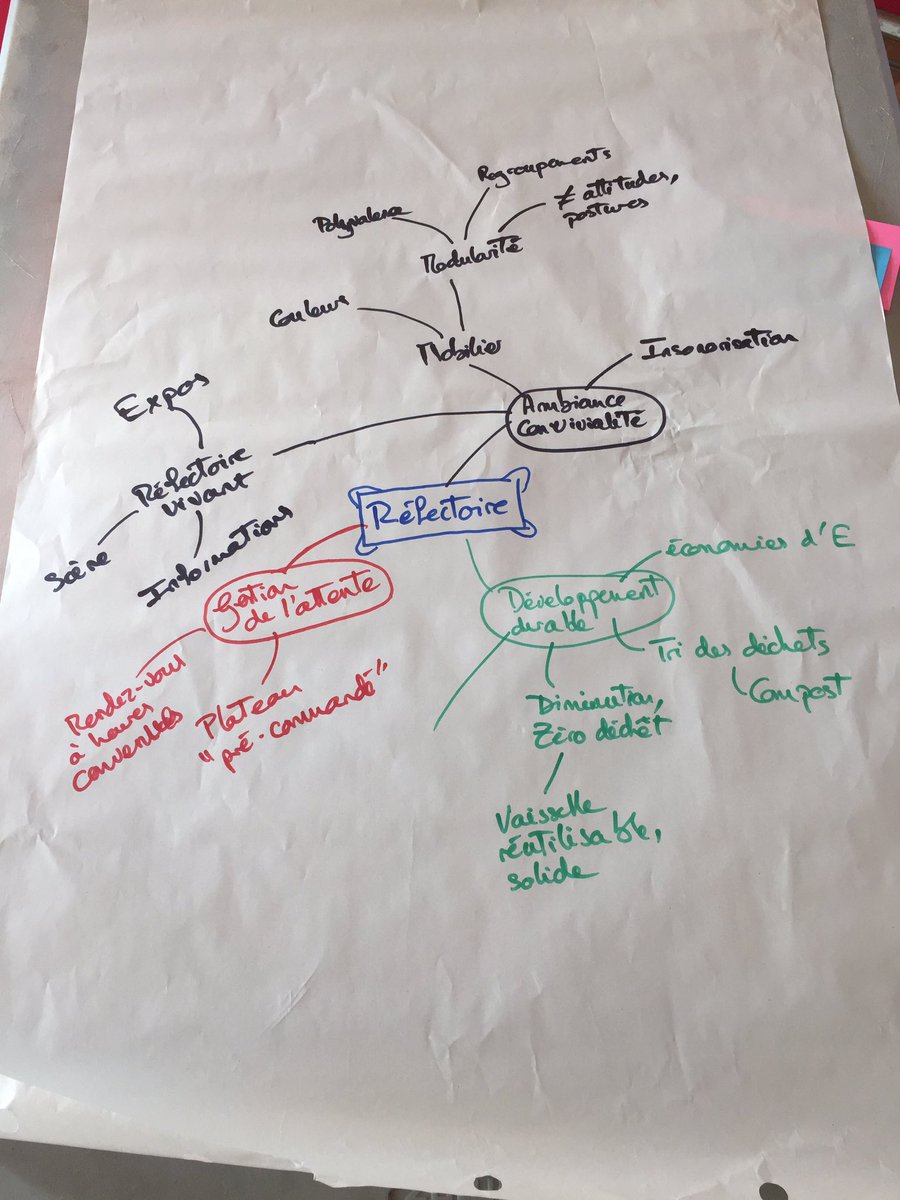 Regroupements
≠ attitudes,
postures
Polyvalence
Modularité
Couleurs
Mobilier
Insonorisation
Ambiance
Convivialité
Expos
Réfectoire
vivant
Scène
Informations
Réfectoire
Gestion
de l'attente
Rendez-vous
à heures
convenues
Plateau
"pré-commandé"
Développement
durable
économies d'E
Tri des déchets
Compost
Diminution,
Zéro déchêt
Vaisselle
réutilisable,
solide